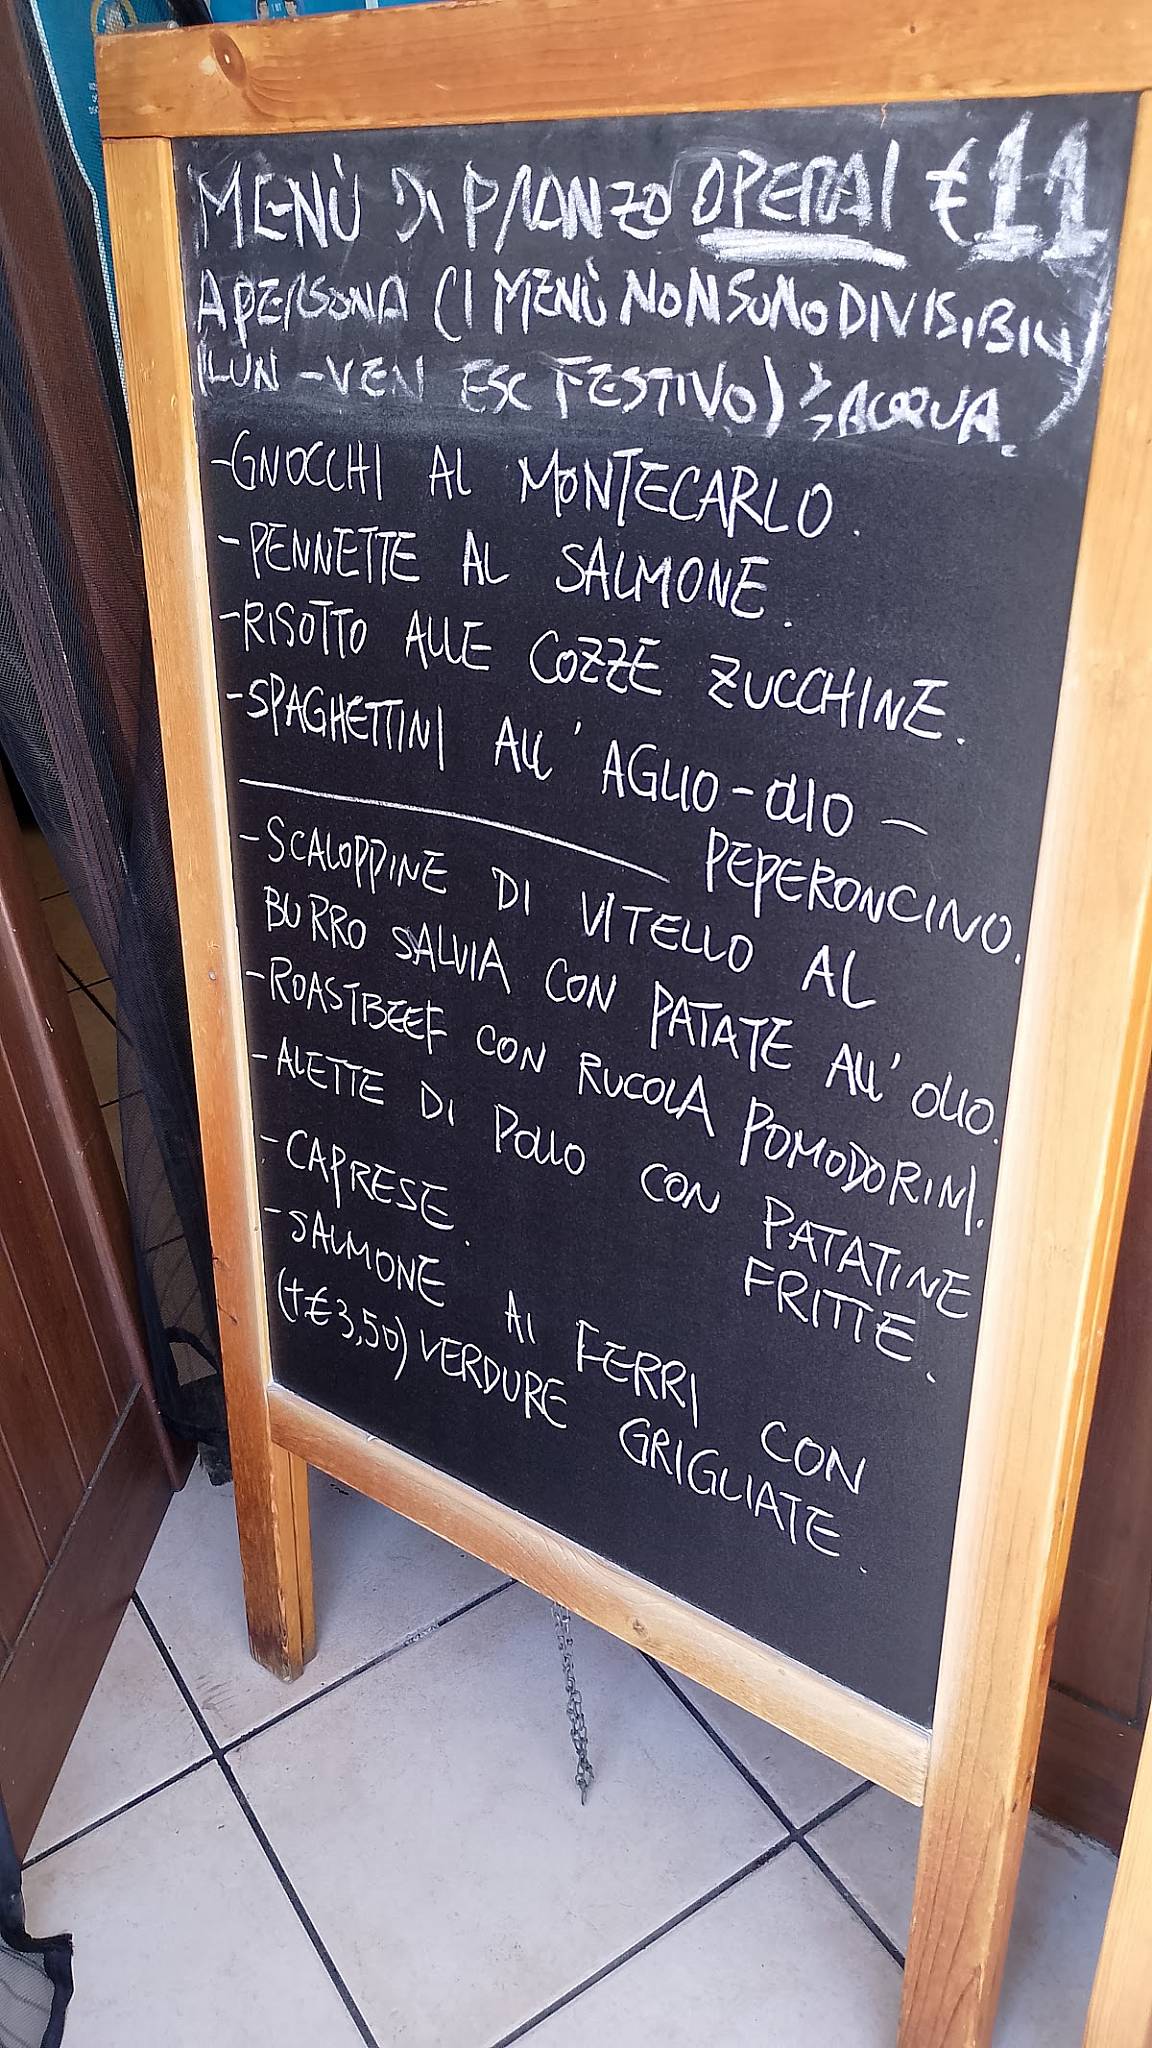 MENÙ DI PRANZO OPERAI €11
A PERSONA (I MENÙ NON SONO DIVISIBILI)
(LUN - VEN ESC FESTIVO) ACQUA.
-GNOCCHI AL MONTECARLO.
-PENNETTE AL SALMONE.
-RISOTTO ALLE COZZE ZUCCHINE.
-SPAGHETTINI ALL' AGLIO-OLIO -
PEPERONCINO.
-SCALOPPINE DI VITELLO AL
BURRO SALVIA CON PATATE ALL' OLIO.
-ROASTBEEF CON RUCOLA POMODORINI.
-ALETTE DI POLLO CON PATATINE
FRITTE.
-CAPRESE.
-SALMONE AI FERRI CON
(+€3,50) VERDURE GRIGLIATE.